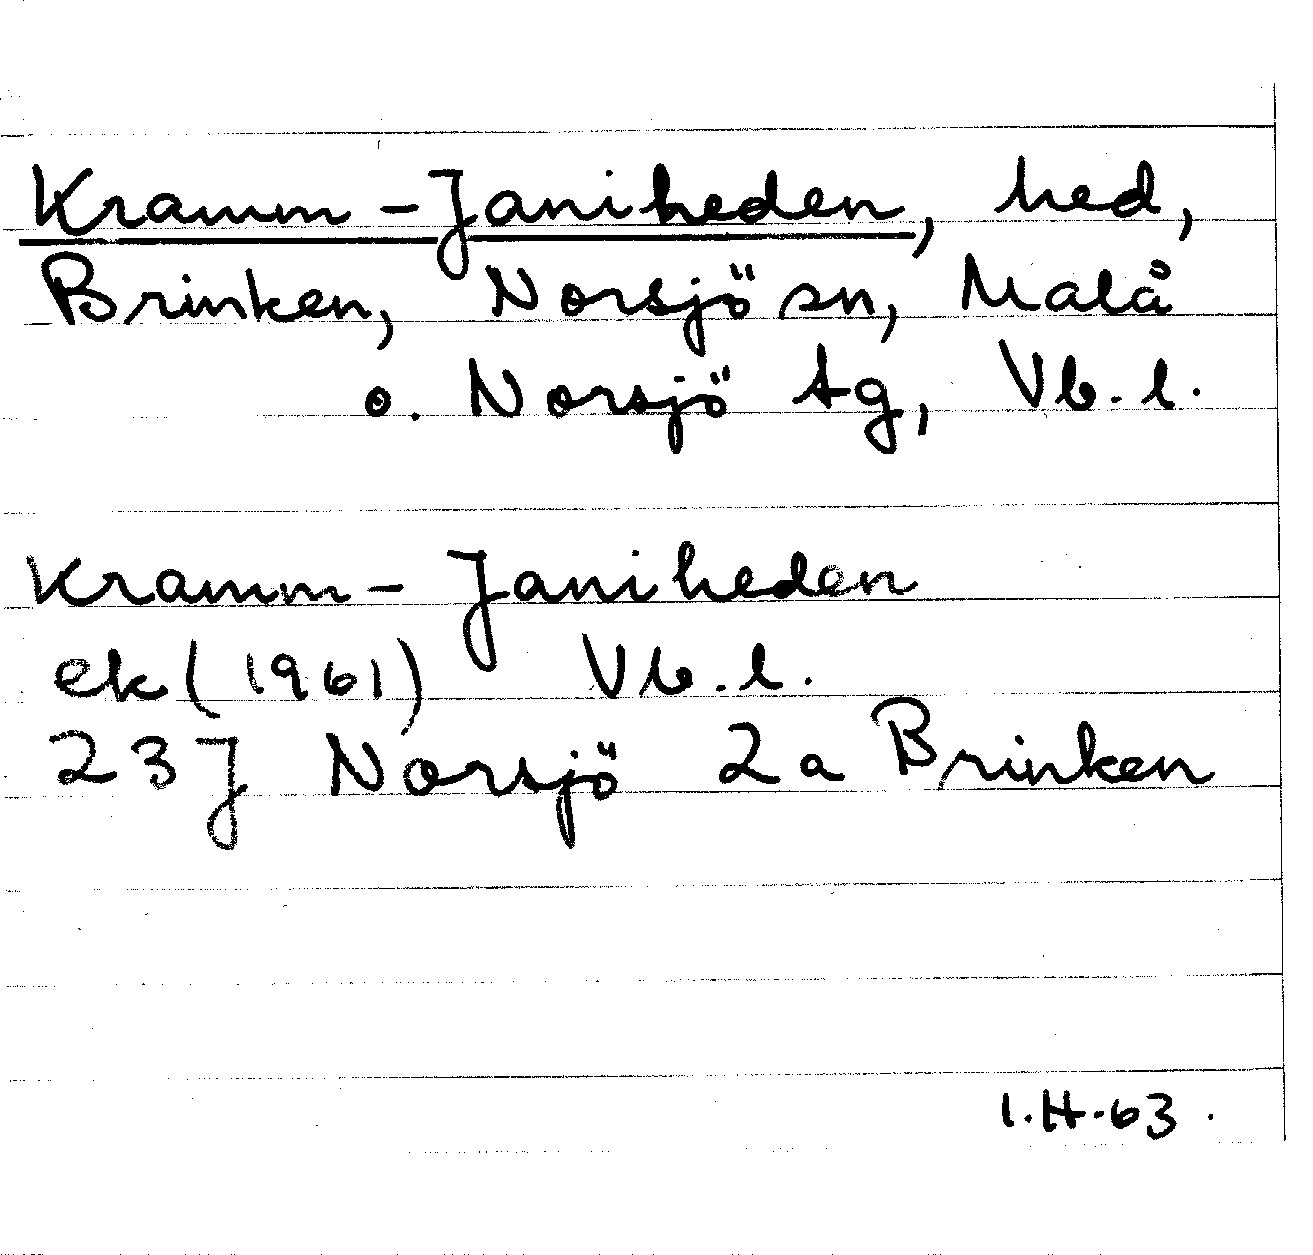 Kramm-Janiheden, hed,
Brinken, Norsjö sn, Malå
o. Norsjö tg, Vb. l.
Kramm-Janiheden
ek (1961) Vb. l.
23J Norsjö 2a Brinken
I.H.-63.